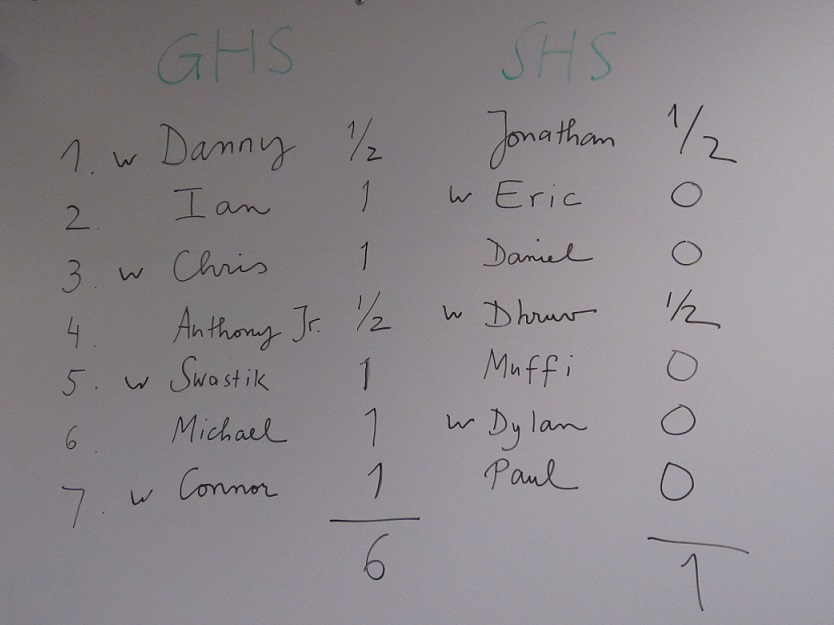 GHS SHS
1. w Danny 1/2 Jonathan 1/2
2. Ian 1 w Eric 0
3. w Chris 1 Daniel 0
4. Anthony Jr. 1/2 w Dhruv 1/2
5. w Swastik 1 Muffi 0
6. Michael 1 w Dylan 0
7. w Connor 1 Paul 0
6 1